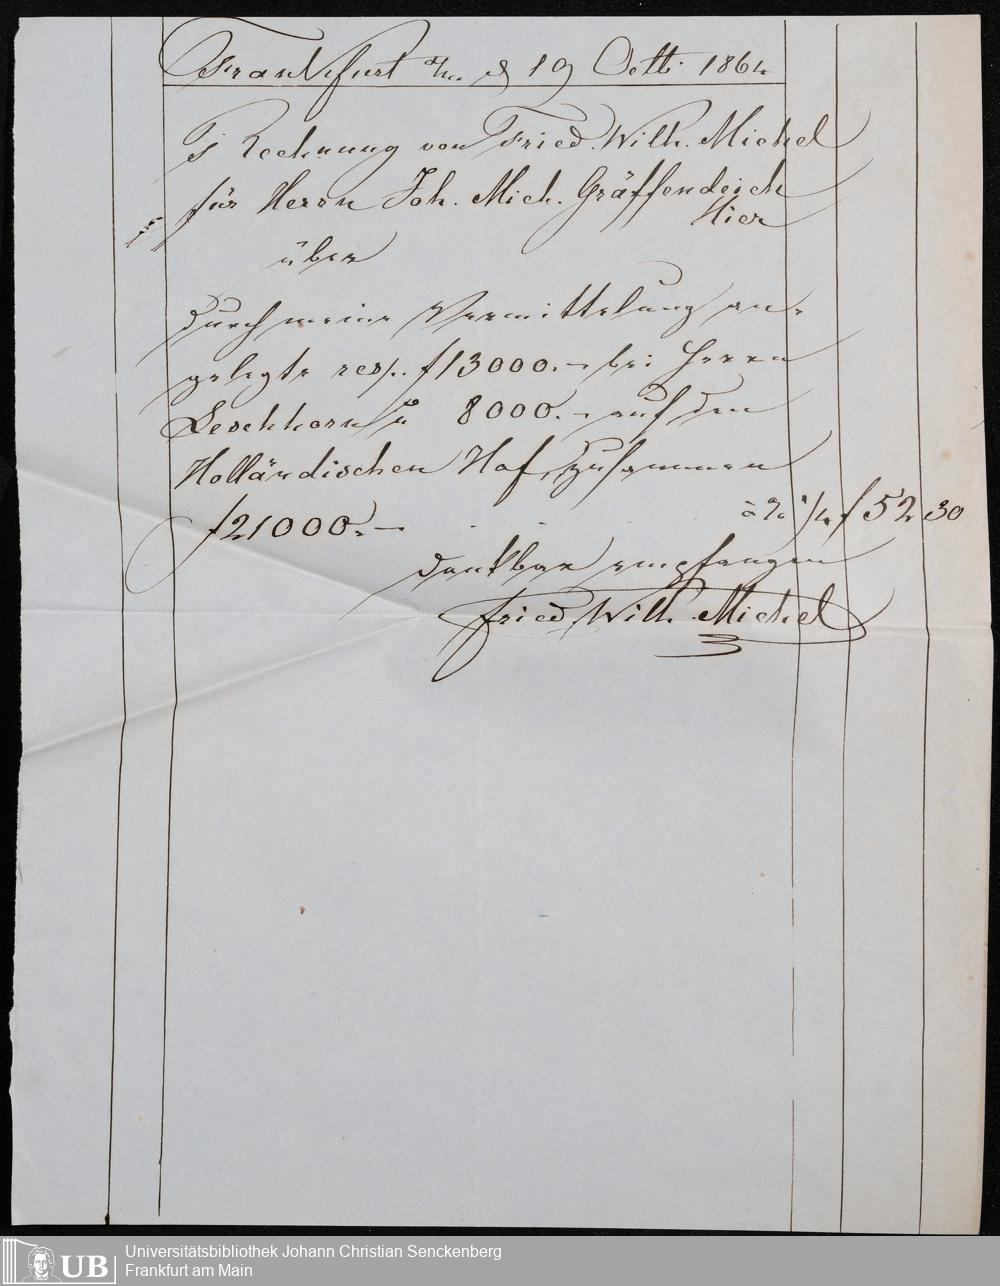 Frankfurt a/m. d 19 Octb. 1864
Rechnung von Fried. Wilh. Michel
für Herrn Joh. Mich. Gräffendeich
Hier
über
durch meine Vermittelung an-
gelegte resp. f 13000.- bei Herrn
Leschhorn u 8000.- auf den
Holländischen Hof, zusammen
f 21000.- à % 1/4 f 52 30
dankbar empfangen
Fried. Wilh. Michel
UB
Universitätsbibliothek Johann Christian Senckenberg
Frankfurt am Main